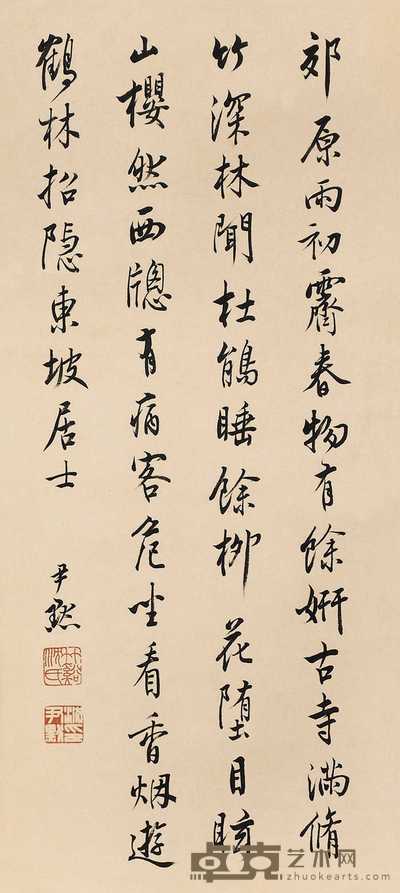 郊原雨初霽春物有餘妍古寺滿脩
竹深林聞杜鵑睡餘柳花墮目眩
山櫻然西牕有病客危坐看香烟遊
鶴林招隱東坡居士
尹默
竹谿沈氏
卓克艺术网
zhuokearts.com